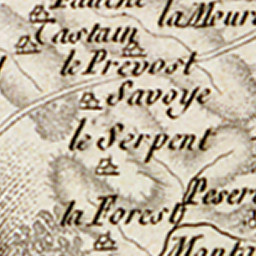 la Meur
Castain
le Prevost
Savoye
le Serpent
Peser
la Forest
Monta